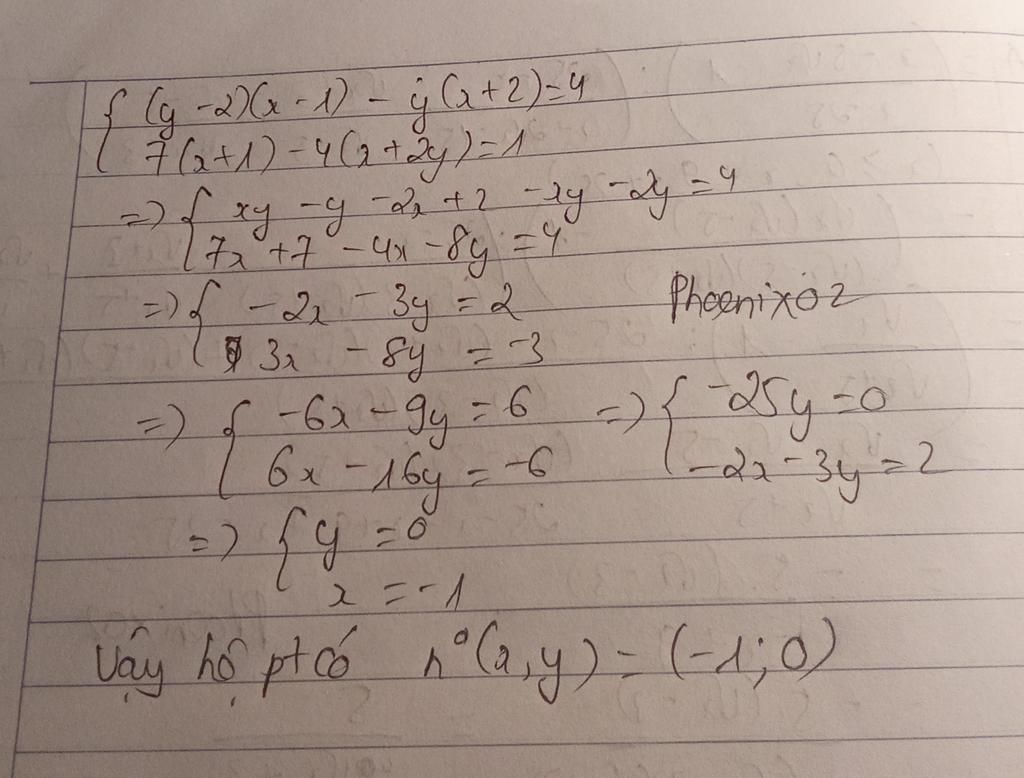 { (y - 2)(x - 1) - y(x + 2) = 4
7(x+1) - 4(x + 2y) = 1
=> { xy - y - 2x + 2 - xy - 2y = 4
7x + 7 - 4x - 8y = 4
=> { - 2x - 3y = 2
Phoenix02
3x - 8y = -3
=> { -6x - 9y = 6 => { -25y = 0
6x - 16y = -6 -2x - 3y = 2
=> { y = 0
x = -1
Vậy hệ pt có n° (x, y) = (-1; 0)